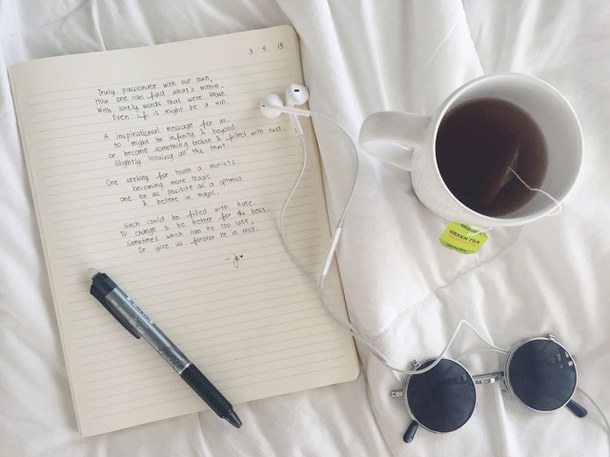 3. 4. 15
Truly passionate with our own,
How one can find what's within.
With lovely words that were
Even if it might be a sin.
A inspirational message for us.
to might be infinity & beyond.
or become something broken & filled with rust.
Slightly loosing all the trust.
One seeking for truth a realists.
becoming more tragic
one be as positive as a optimist
& believe in magic.
Such could be filled with hate.
To change & be better for the best.
Sometimes which can be too late,
Or give us forever be in rest.
GREEN TEA